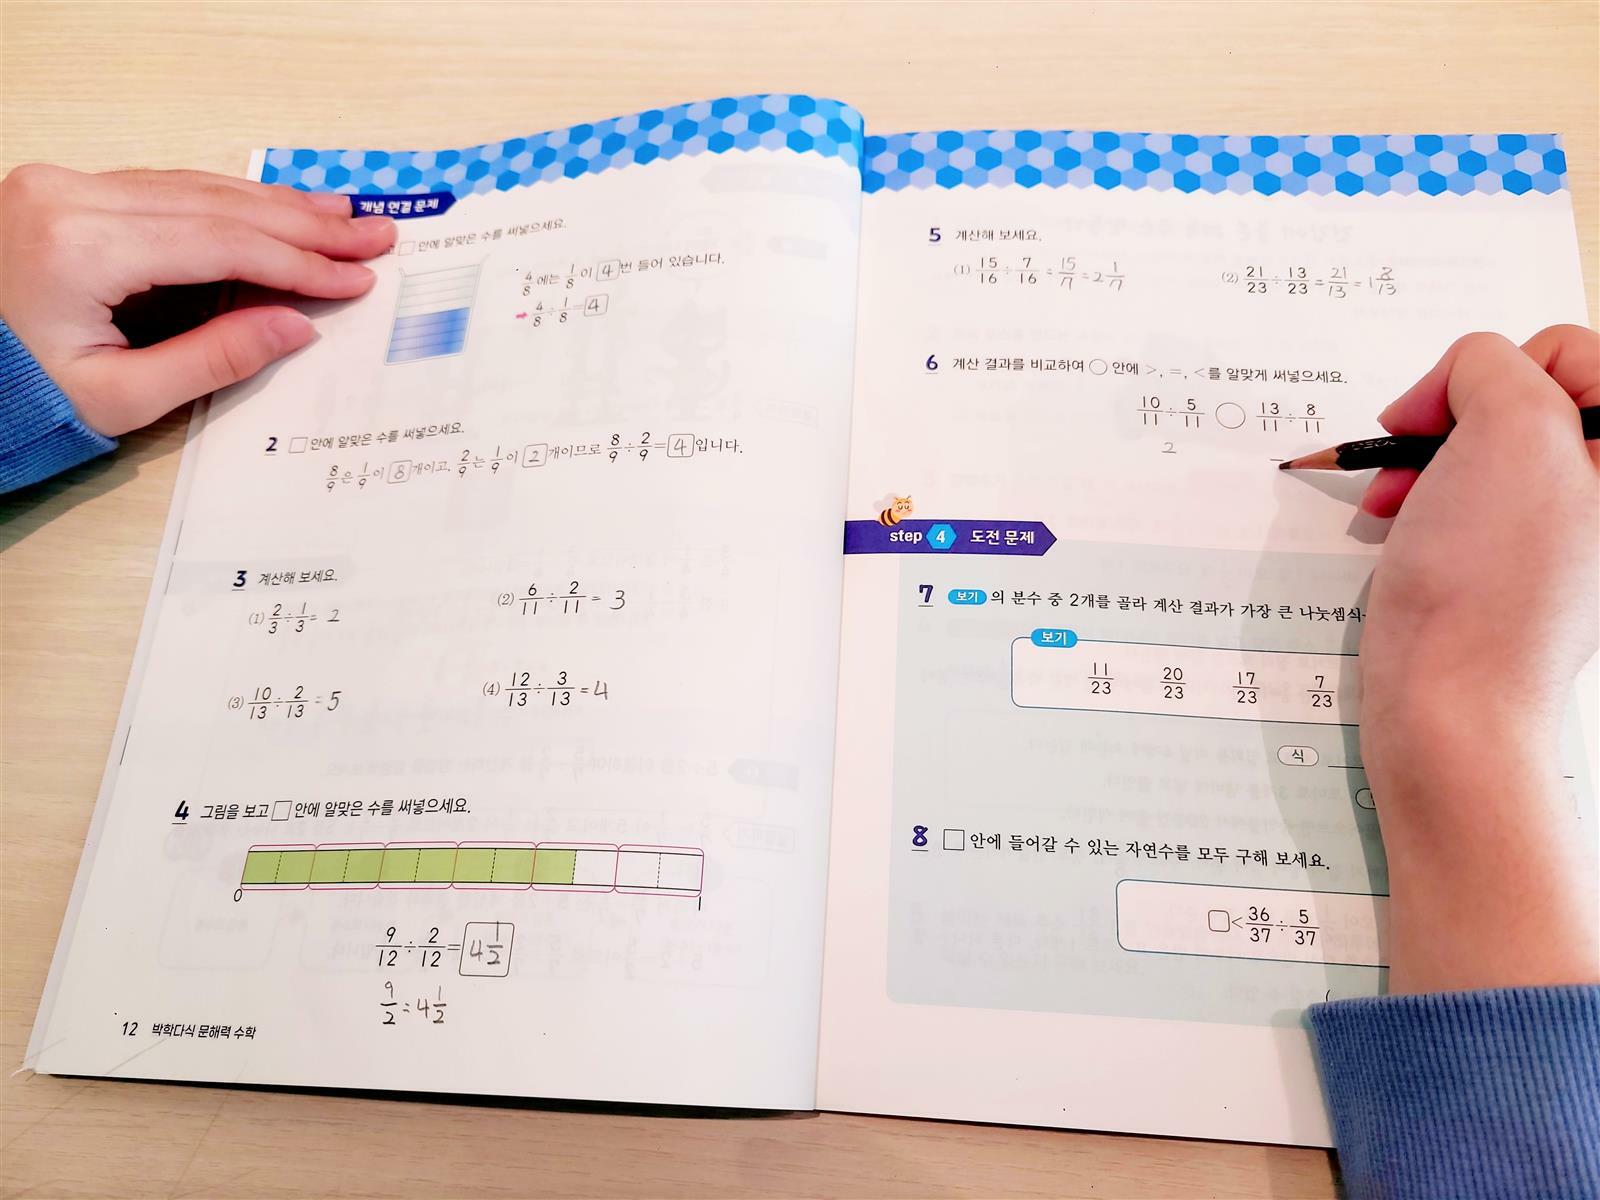 개념 연결 문제
고 □ 안에 알맞은 수를 써넣으세요.
4/8에는 1/8이 4번 들어 있습니다.
➡ 4/8÷1/8=4
2 □ 안에 알맞은 수를 써넣으세요.
8/9은 1/9이 8개이고, 2/9는 1/9이 2개이므로 8/9÷2/9=4입니다.
3 계산해 보세요.
(1) 2/3÷1/3= 2
(2) 6/11÷2/11= 3
(3) 10/13÷2/13=5
(4) 12/13÷3/13=4
4 그림을 보고 □ 안에 알맞은 수를 써넣으세요.
0 1
9/12÷2/12=4 1/2
9/2=4 1/2
12 박학다식 문해력 수학
5 계산해 보세요.
(1) 15/16÷7/16=15/7=2 1/7
(2) 21/23÷13/23=21/13=1 8/13
6 계산 결과를 비교하여 ○ 안에 >, =, <를 알맞게 써넣으세요.
10/11÷5/11 ○ 13/11÷8/11
2
step 4 도전 문제
7 보기 의 분수 중 2개를 골라 계산 결과가 가장 큰 나눗셈식
보기
11/23 20/23 17/23 7/23
식
8 □ 안에 들어갈 수 있는 자연수를 모두 구해 보세요.
□<36/37÷5/37
(